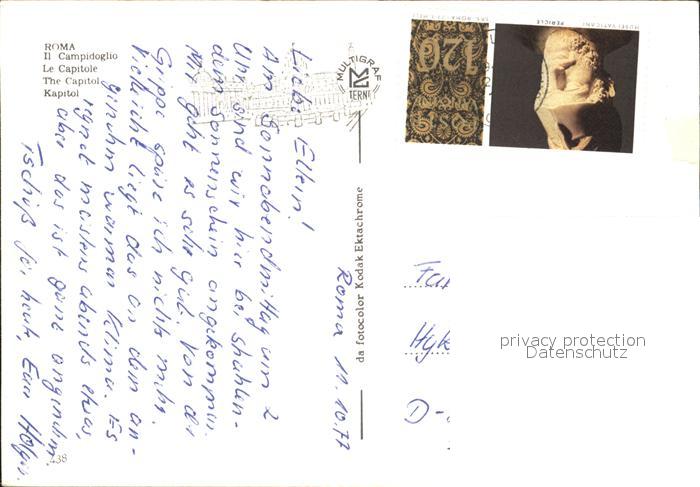 ROMA
Il Campidoglio
Le Capitole
The Capitol
Kapitol
MULTIGRAF
TERNI
MUSEI VATICANI
PERICLE
120
Roma 10.10.77
Liebe Eltern!
Am Sonnabendmittag um 2
Uhr sind wir hier bei strahlen-
dem Sonnenschein angekommen.
Mir geht es sehr gut. Von der
Grippe spüre ich nichts mehr.
Vielleicht liegt das an dem an-
genehm warmen Klima. Es
regnet meistens abends etwas,
aber das ist ganz angenehm.
Tschüß für heute, Euer Holger.
da fotocolor Kodak Ektachrome
438
Fa
Hyk
D-
privacy protection
Datenschutz